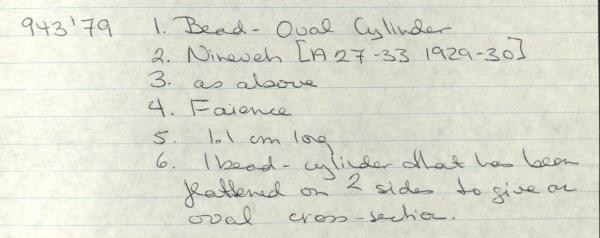 943'79 1. Bead - Oval Cylinder
2. Nineveh [A 27-33 1929-30]
3. as above
4. Faience
5. 1.1 cm long
6. 1 bead - cylinder that has been
flattened on 2 sides to give an
oval cross-section.